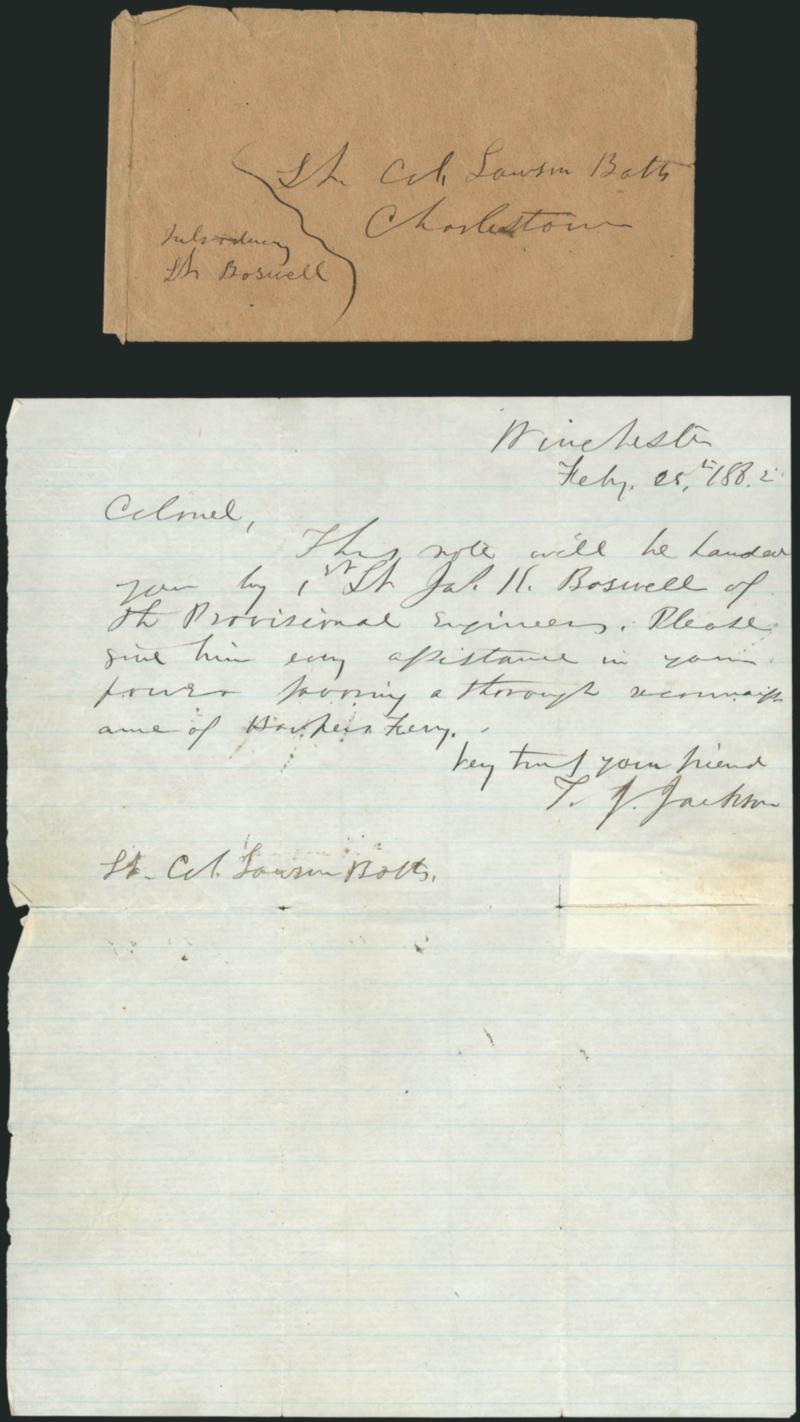 Lt. Col. Lawson Botts
Charlestown
Introducing
Lt Boswell
Winchester
Feby. 25,th 1862
Colonel,
This note will be handed
you by 1st Lt Jas. K. Boswell of
the Provisional Engineers. Please
give him every assistance in your
power towards a thorough reconnaiss
ance of Harpers Ferry.
Very truly your friend
T. J. Jackson
Lt. Col. Lawson Botts.